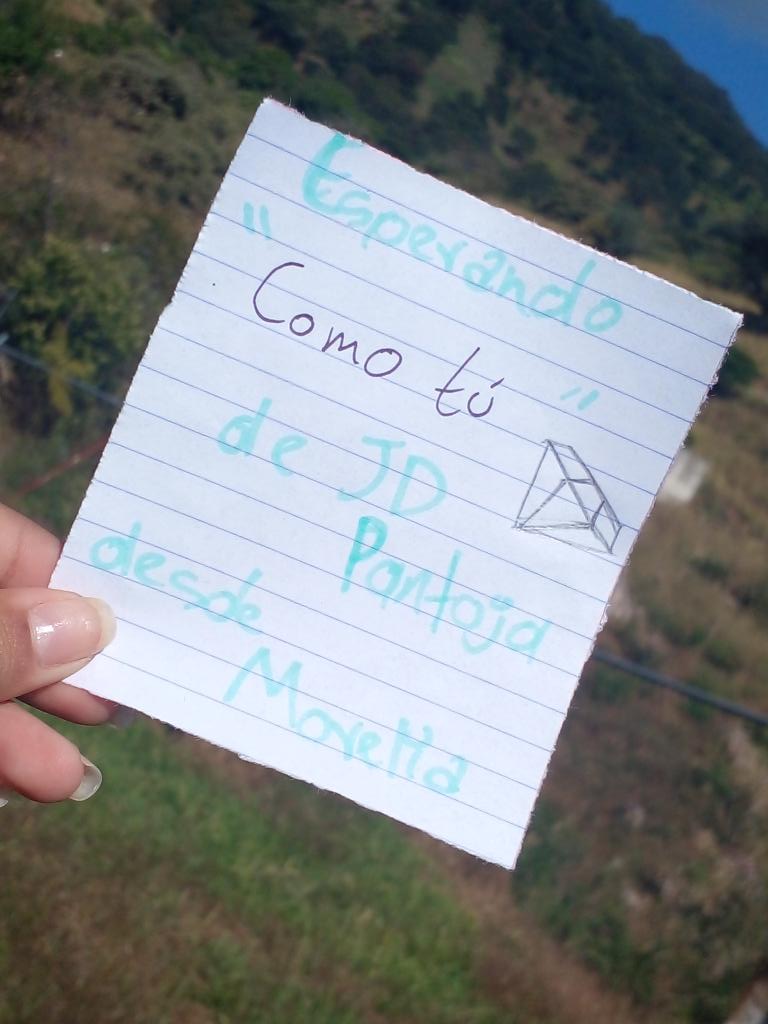 Esperando
"Como tú"
de JD
Pantoja
desde
Morelia